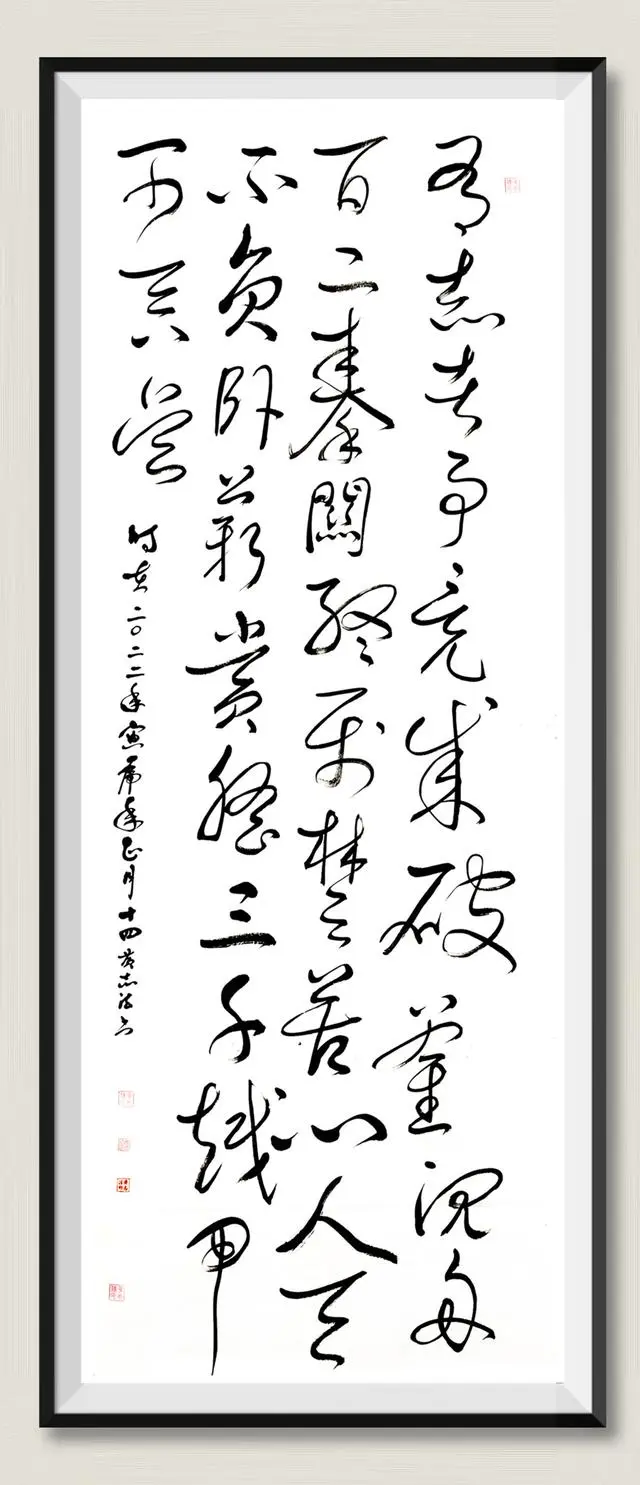 有志者事竟成破釜沉舟
百二秦關終屬楚苦心人天
不負卧薪嘗膽三千越甲
可吞吳
時在二〇二二年寅虎年正月十四黄志